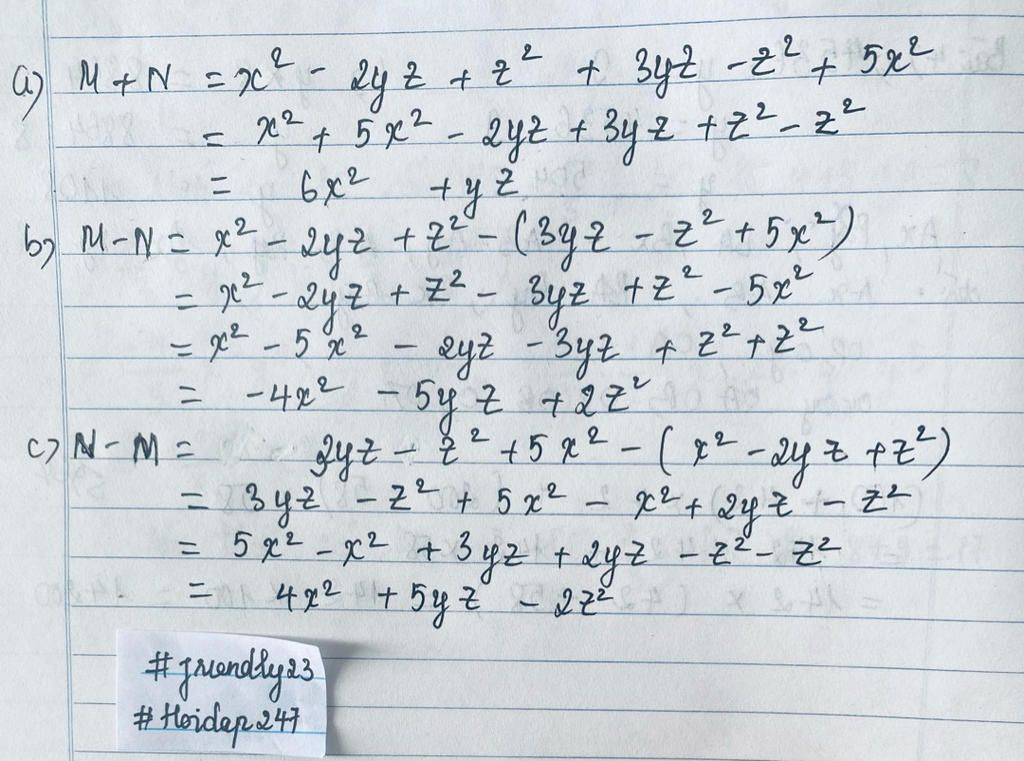 a) M + N = x² - 2yz + z² + 3yz - z² + 5x²
= x² + 5x² - 2yz + 3yz + z² - z²
= 6x² + yz
b) M - N = x² - 2yz + z² - (3yz - z² + 5x²)
= x² - 2yz + z² - 3yz + z² - 5x²
= x² - 5x² - 2yz - 3yz + z² + z²
= -4x² - 5yz + 2z²
c) N - M = 3yz - z² + 5x² - (x² - 2yz + z²)
= 3yz - z² + 5x² - x² + 2yz - z²
= 5x² - x² + 3yz + 2yz - z² - z²
= 4x² + 5yz - 2z²
#friendly23
#Hoidap247